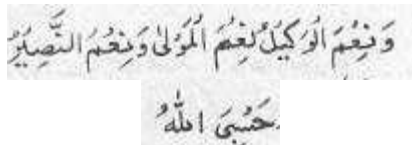 وَنِعْمَ الْوَكِيْلُ نِعْمَ الْمَوْلٰى وَنِعْمَ النَّصِيْرُ
حَسْبِىَ اللّٰهُ